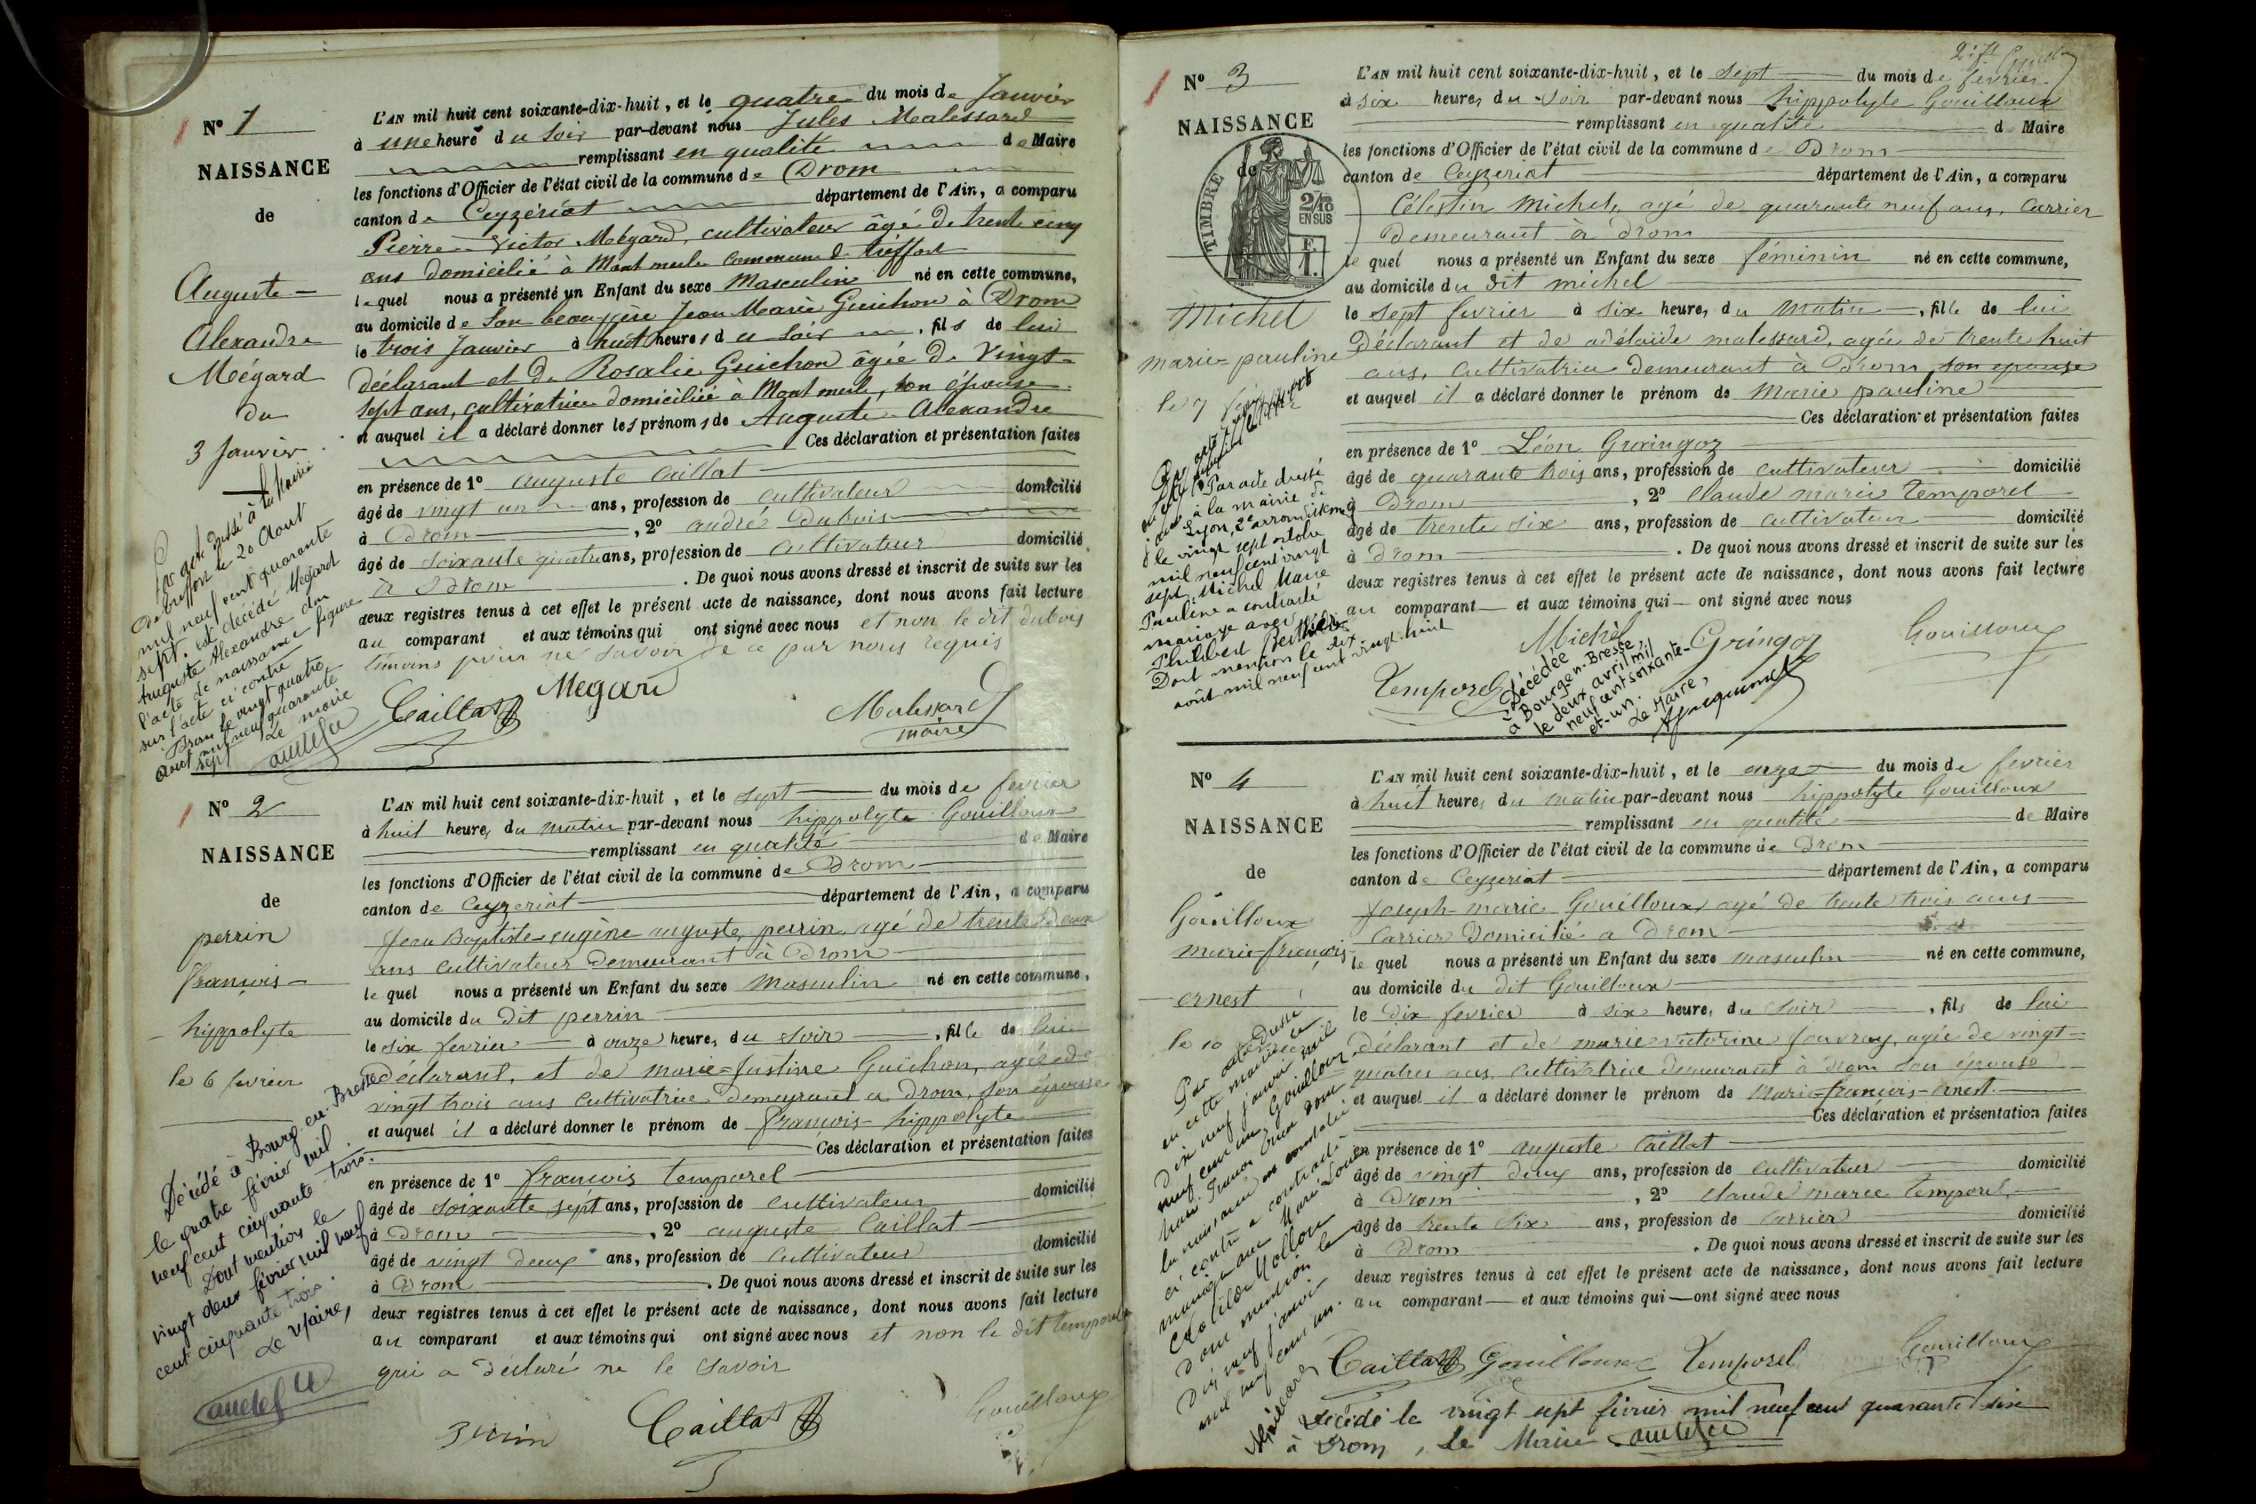 Nº 1
NAISSANCE
de
Auguste
Alexandre
Mégard
du
3 Janvier
L'AN mil huit cent soixante-dix-huit, et le quatre du mois de Janvier
à une heure du soir par-devant nous Jules Malessard
remplissant en qualité de Maire
les fonctions d'Officier de l'état civil de la commune de Drom
canton de Ceyzériat département de l'Ain, a comparu
Pierre Victor Mégard, cultivateur âgé de trente cinq
ans domicilié à Montmerle commune de treffort
lequel nous a présenté un Enfant du sexe Masculin né en cette commune,
au domicile de Son beau père Jean Marie Guichon à Drom
le trois Janvier à huit heures du soir, fils de lui
déclarant et de Rosalie Guichon âgée de Vingt-
sept ans, cultivatrice domiciliée à Montmerle, son épouse
et auquel il a déclaré donner les prénoms de Auguste Alexandre
Ces déclaration et présentation faites
en présence de 1º auguste Caillat
âgé de vingt un ans, profession de cultivateur domicilié
à Drom, 2º andré Dubois
âgé de soixante quatre ans, profession de cultivateur domicilié
à Drom. De quoi nous avons dressé et inscrit de suite sur les
deux registres tenus à cet effet le présent acte de naissance, dont nous avons fait lecture
au comparant et aux témoins qui ont signé avec nous et non le dit dubois
témoins pour ne savoir de ce par nous requis
Caillat Megard Malessard
maire
Par acte dressé à la Mairie
de Treffort le 20 Aout
mil neuf cent quarante
sept, est décédé Mégard
Auguste Alexandre dont
l'acte de naissance figure
sur l'acte ci contre
Drom le vingt quatre
Aout mil neuf quarante
sept Le maire
Nº 2
NAISSANCE
de
perrin
françois
hippolyte
le 6 fevrier
L'AN mil huit cent soixante-dix-huit, et le sept du mois de fevrier
à huit heures du matin par-devant nous hippolyte Gouilloux
remplissant en qualité de Maire
les fonctions d'Officier de l'état civil de la commune de Drom
canton de Ceyzeriat département de l'Ain, a comparu
Jean Baptiste eugène auguste perrin agé de trente deux
ans cultivateur demeurant à Drom
le quel nous a présenté un Enfant du sexe Masculin né en cette commune,
au domicile du dit perrin
le six fevrier à onze heures du soir, fils de lui
déclarant, et de marie Justine Guichon, agée de
vingt trois ans cultivatrice demeurant a Drom, son épouse
et auquel il a déclaré donner le prénom de françois hippolyte
Ces déclaration et présentation faites
en présence de 1º françois temporel
âgé de soixante sept ans, profession de cultivateur domicilié
à Drom, 2º auguste Caillat
âgé de vingt deux ans, profession de cultivateur domicilié
à Drom. De quoi nous avons dressé et inscrit de suite sur les
deux registres tenus à cet effet le présent acte de naissance, dont nous avons fait lecture
au comparant et aux témoins qui ont signé avec nous et non le dit temporel
qui a déclaré ne le savoir
perrin Caillat Gouilloux
Décédé à Bourg-en-Bresse
le quatre février mil
neuf cent cinquante-trois.
Dont mention le
vingt deux février mil neuf
cent cinquante trois.
Le Maire,
Nº 3
NAISSANCE
de
Michel
marie-pauline
le 7
TIMBRE
2/10
EN SUS
L'AN mil huit cent soixante-dix-huit, et le sept du mois de fevrier
à six heures du soir par-devant nous hippolyte Gouilloux
remplissant en qualité de Maire
les fonctions d'Officier de l'état civil de la commune de Drom
canton de Ceyzeriat département de l'Ain, a comparu
Célestin Michel, agé de quarante neuf ans, Carrier
Demeurant à Drom
le quel nous a présenté un Enfant du sexe féminin né en cette commune,
au domicile du dit michel
le sept fevrier à six heures du matin, fille de lui
Déclarant et de adélaïde malessard, agée de trente huit
ans, cultivatrice demeurant à Drom, son epouse
et auquel il a déclaré donner le prénom de Marie pauline
Ces déclaration et présentation faites
en présence de 1º Léon Graingoz
âgé de quarante trois ans, profession de cultivateur domicilié
à Drom, 2º Claude marie Temporel
âgé de trente six ans, profession de cultivateur domicilié
à Drom. De quoi nous avons dressé et inscrit de suite sur les
deux registres tenus à cet effet le présent acte de naissance, dont nous avons fait lecture
au comparant et aux témoins qui ont signé avec nous
Michel Gringoz Gouilloux
Temporel
Par acte dressé
à la mairie de
Lyon, 2e arrondissement
le vingt sept octobre
mil neuf cent vingt
sept, Michel Marie
Pauline a contracté
mariage avec
Philibert Berthier
Dont mention le dix
août mil neuf cent vingt huit
Décédée
à Bourg-en-Bresse,
le deux avril mil
neuf cent soixante-
et-un.
Le Maire,
Nº 4
NAISSANCE
de
Gouilloux
marie françois
ernest
le 10 fevrier
L'AN mil huit cent soixante-dix-huit, et le onze du mois de fevrier
à huit heures du matin par-devant nous hippolyte Gouilloux
remplissant en qualité de Maire
les fonctions d'Officier de l'état civil de la commune de Drom
canton de Ceyzeriat département de l'Ain, a comparu
Joseph-marie Gouilloux, agé de trente trois ans
Carrier Domicilié a Drom
le quel nous a présenté un Enfant du sexe masculin né en cette commune,
au domicile du dit Gouilloux
le dix fevrier à six heures du soir, fils de lui
déclarant et de marie victorine Jouvray, agée de vingt-
quatre ans, cultivatrice demeurant à Drom son épouse
et auquel il a déclaré donner le prénom de Marie-françois-Ernest
Ces déclaration et présentation faites
en présence de 1º auguste Caillat
âgé de vingt deux ans, profession de cultivateur domicilié
à Drom, 2º Claude marie temporel
âgé de trente six ans, profession de carrier domicilié
à Drom. De quoi nous avons dressé et inscrit de suite sur les
deux registres tenus à cet effet le présent acte de naissance, dont nous avons fait lecture
au comparant et aux témoins qui ont signé avec nous
Caillat Gouilloux Temporel Gouilloux
Par acte dressé
en cette mairie le
dix neuf janvier mil
neuf cent un, Gouilloux
Marie François Ernest dont
la naissance est constatée
ci contre a contracté
mariage avec Marie Louise
Clotilde Mollon
Dont mention le
Dix neuf janvier
mil neuf cent un.
Décédé le vingt sept février mil neuf cent quarante six
à Drom, Le Maire